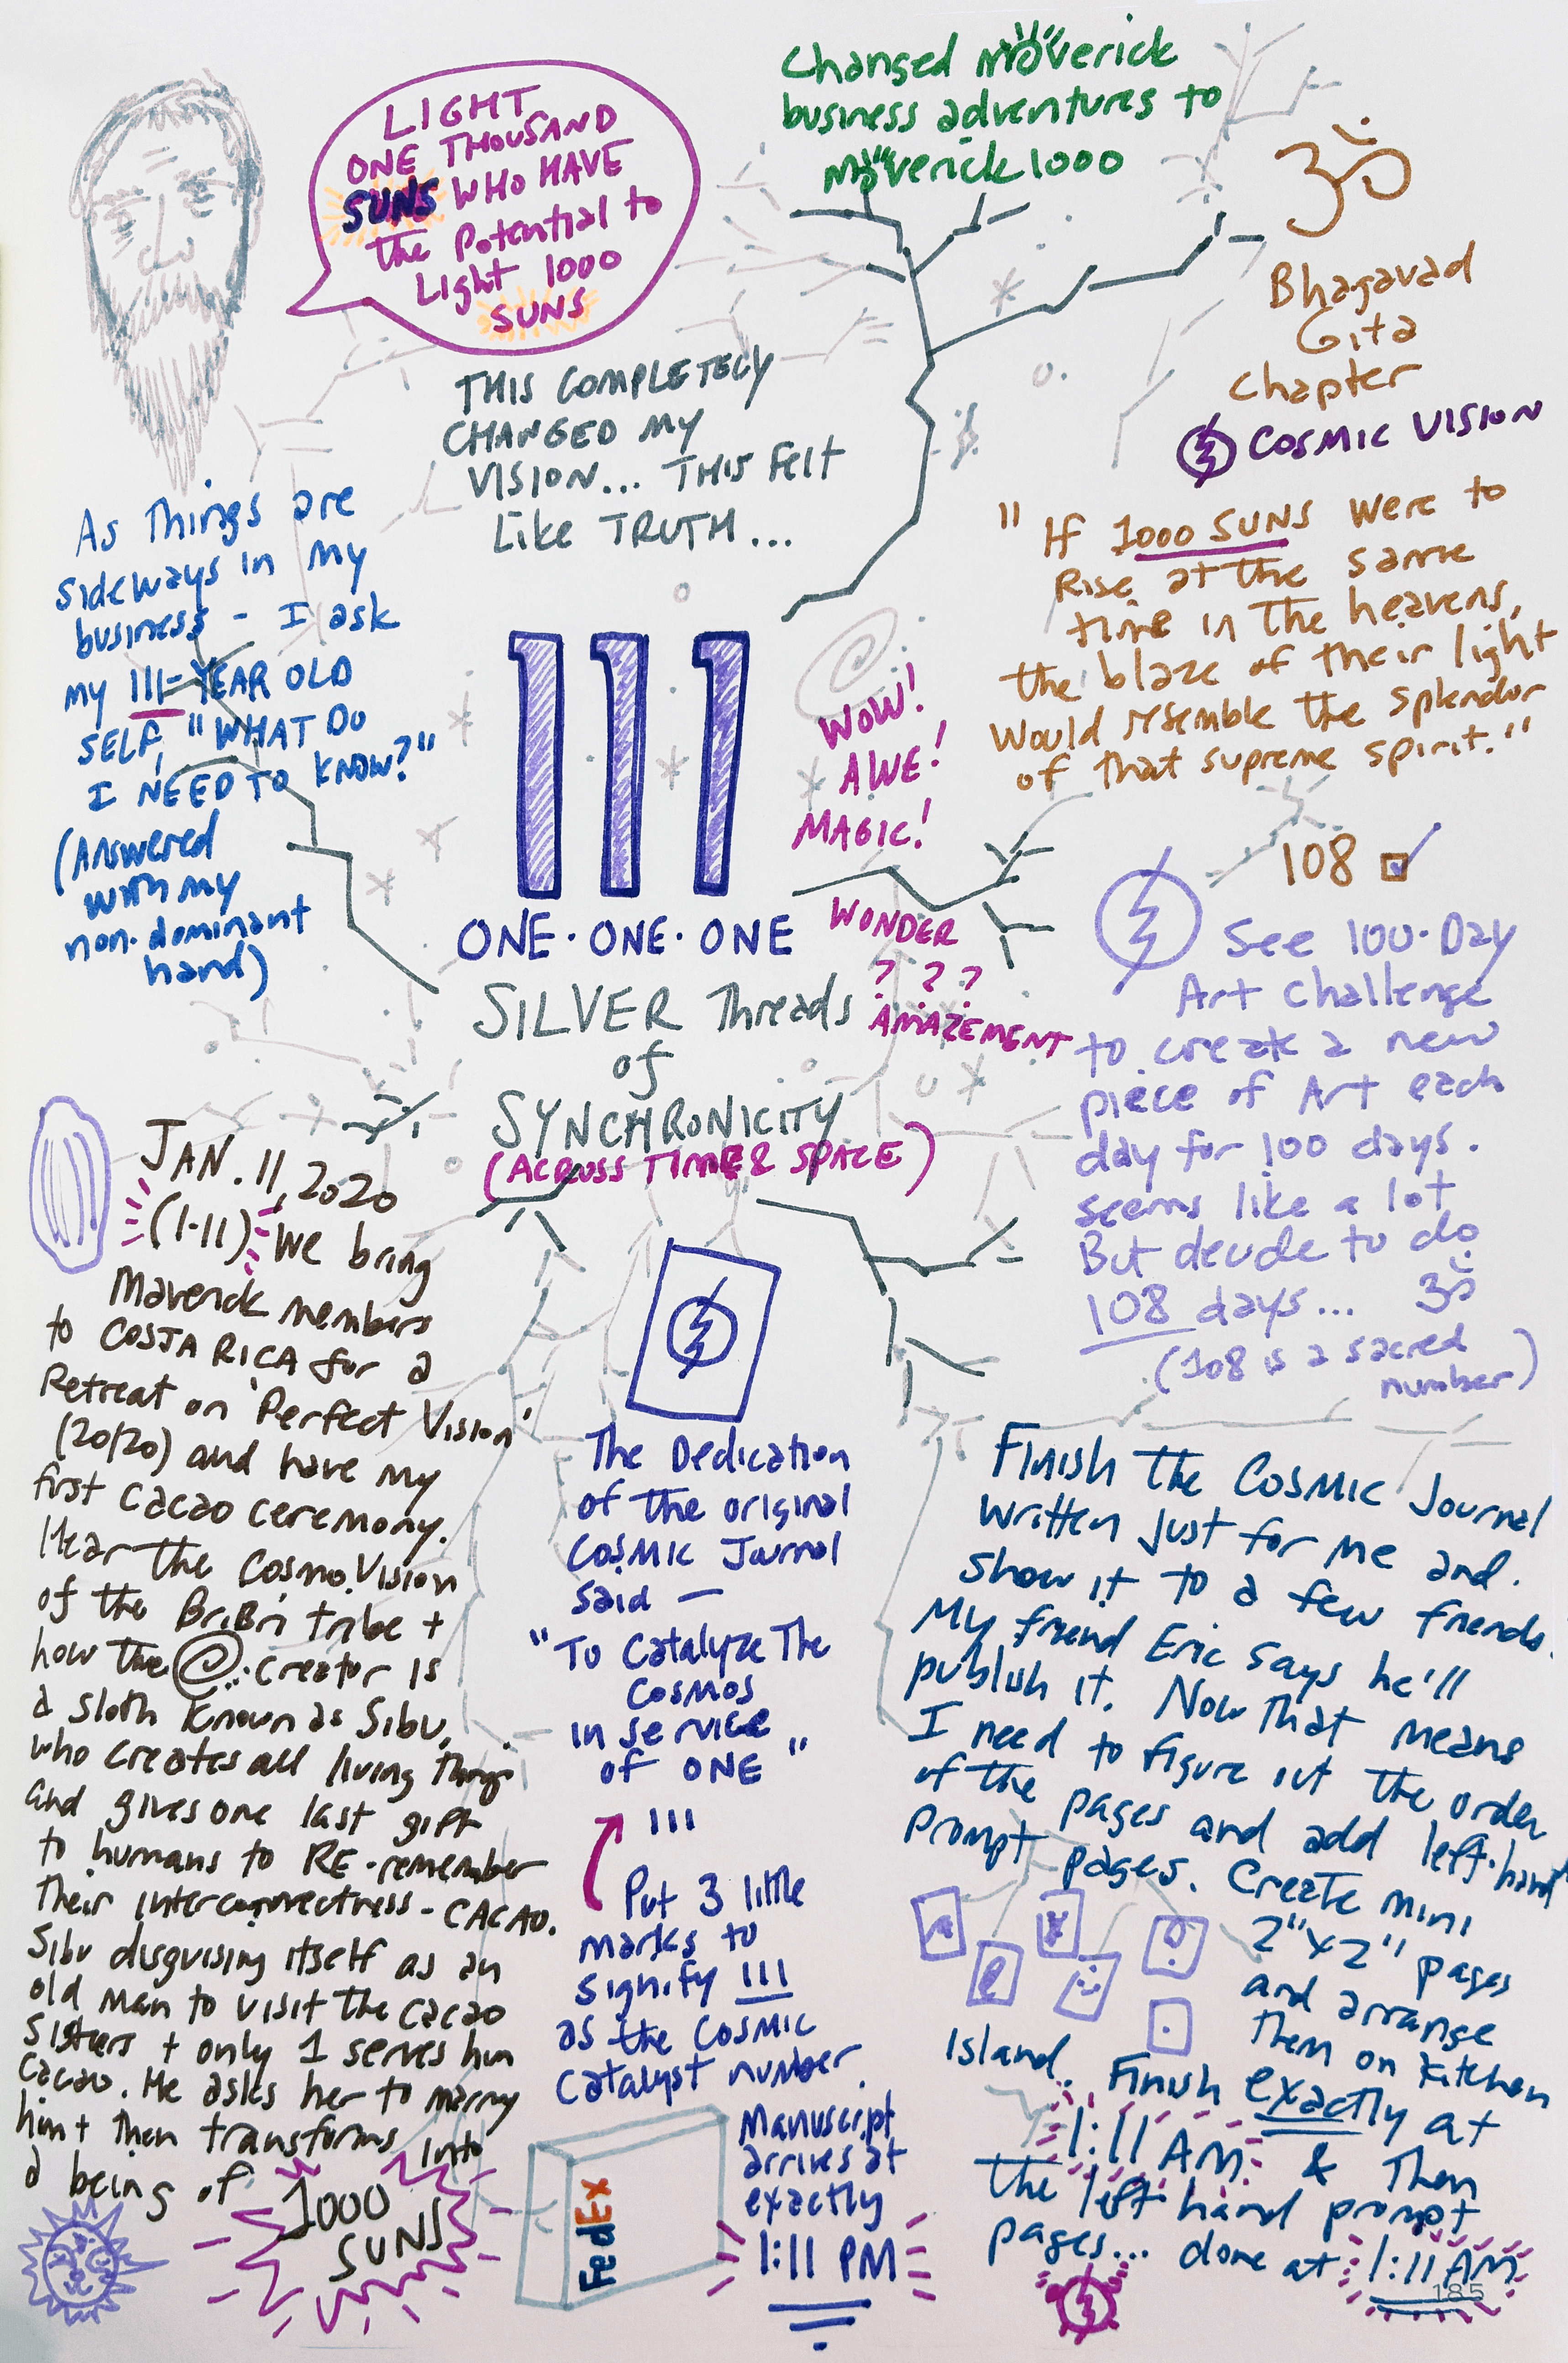 LIGHT
ONE THOUSAND
SUNS WHO HAVE
the Potential to
Light 1000
SUNS
Changed Maverick
business adventures to
Maverick 1000
ॐ
Bhagavad
Gita
Chapter
COSMIC VISION
THIS COMPLETELY
CHANGED MY
VISION... THIS Felt
Like TRUTH...
As Things are
sideways in my
business - I ask
my 111-YEAR OLD
SELF, "WHAT DO
I NEED TO KNOW?"
(Answered
with my
non-dominant
hand)
"If 1000 SUNS were to
Rise at the same
time in the heavens,
the blaze of their light
Would resemble the splendor
of that supreme spirit."
111
ONE·ONE·ONE
WOW!
AWE!
MAGIC!
WONDER
? ? ?
AMAZEMENT
SILVER Threads
of
SYNCHRONICITY
(ACROSS TIME & SPACE)
108
See 100-Day
Art Challenge
to create a new
piece of Art each
day for 100 days.
seems like a lot
But decide to do
108 days... ॐ
(108 is a sacred
number)
JAN. 11, 2020
(1-11) We bring
Maverick members
to COSTA RICA for a
Retreat on 'Perfect Vision'
(20/20) and have my
first cacao ceremony.
Hear the Cosmo.Vision
of the BriBri tribe +
how the Creator is
a sloth known as Sibu,
who creates all living things
and gives one last gift
to humans to RE-remember
Their interconnectness - CACAO.
Sibu disguising itself as an
old man to visit the cacao
Sisters + only 1 serves him
cacao. He asks her to marry
him + then transforms into
a being of
1000
SUNS
The Dedication
of the original
Cosmic Journal
said —
"To Catalyze The
Cosmos
in service
of ONE"
111
Put 3 little
marks to
signify 111
as the Cosmic
Catalyst number.
FedEx
Manuscript
arrives at
exactly
1:11 PM
Finish the Cosmic Journal
written just for me and
show it to a few friends.
My friend Eric says he'll
publish it. Now that means
I need to figure out the order
of the pages and add left-hand
Prompt pages. Create mini
2"x2" pages
and arrange
them on kitchen
Island. Finish exactly at
1:11 AM & Then
the left hand prompt
pages... done at 1:11 AM
185